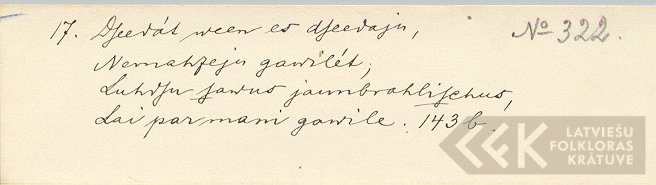 17. Dseedát ween es dseedaju, No 322.
Nemahzeju gawilét;
Luhdsu sawus jaunbrahlischus,
Lai par mani gawile. 143 b.
LATVIEŠU
FOLKLORAS
KRĀTUVE